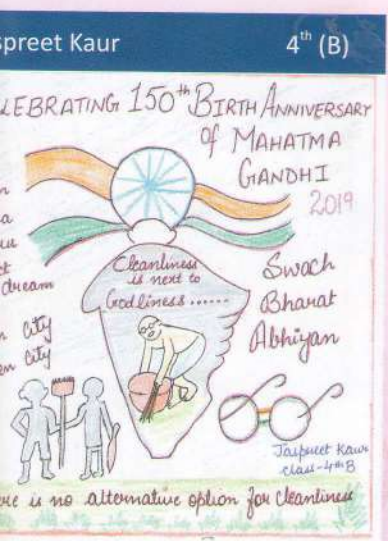 spreet Kaur 4th (B)
LEBRATING 150th BIRTH ANNIVERSARY
of MAHATMA
GANDHI
2019
dream
City
en City
Cleanliness
is next to
Godliness ......
Swach
Bharat
Abhiyan
Jaspreet Kaur
class-4th B
ere is no alternative option for cleanliness